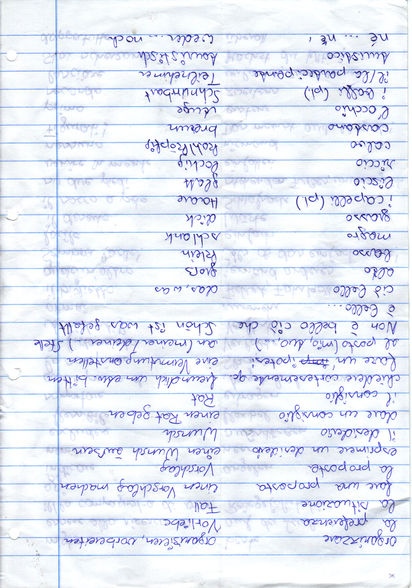 organizzare organisieren, vorbereiten
la preferenza Vorliebe
la situazione Fall
fare una proposta einen Vorschlag machen
la proposta Vorschlag
esprimere un desiderio einen Wunsch äußern
il desiderio Wunsch
dare un consiglio einen Rat geben
il consiglio Rat
chiedere cortesemente qc freundlich um etw. bitten
fare un' ipotesi eine Vermutung anstellen
al posto (mio, tuo ...) an (meiner/deiner..) Stelle
Non è bello ciò che schön ist was gefällt
è bello...
ciò bello das was
alto groß
basso klein
magro schlank
grasso dick
i capelli (pl) Haare
liscio glatt
riccio lockig
calvo kahl(köpfig)
castano braun
l'occhio Auge
i baffi (pl) Schnurrbart
il/la partecipante Teilnehmer
turistico touristisch
né ... né weder... noch